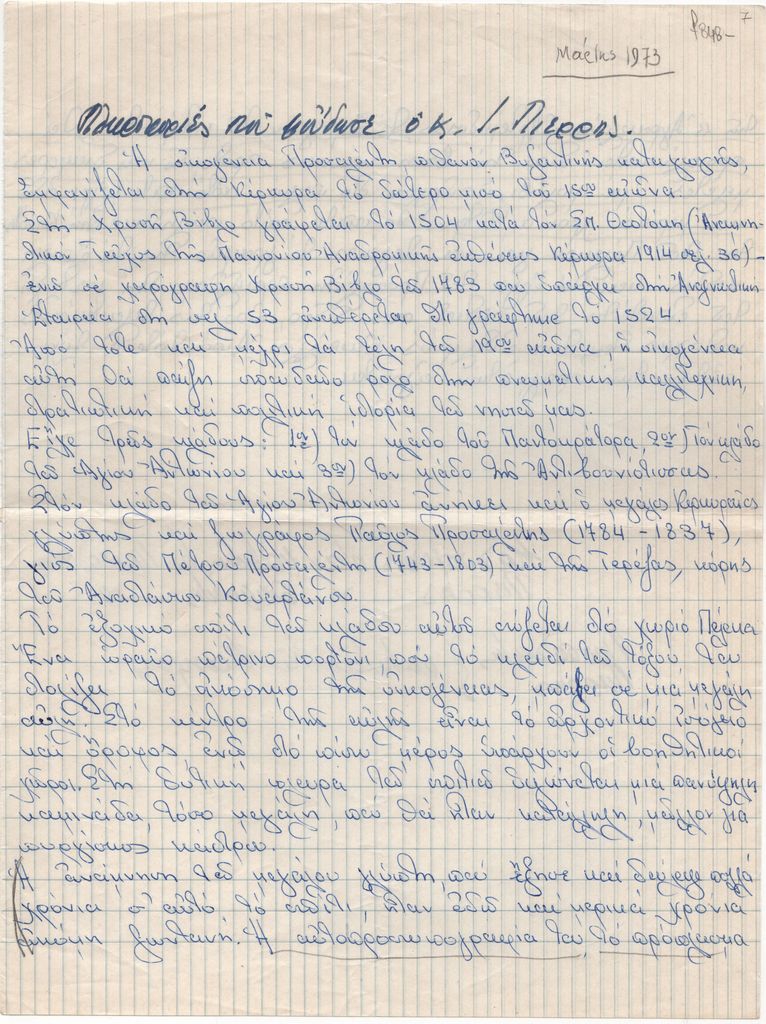 7
Μάρτης 1973
Πληροφορίες που μούδωσε ὁ κ. Ι. Πιέρρης.
Ἡ οἰκογένεια Προσαλέντη πιθανόν Βυζαντινῆς καταγωγῆς,
ἐμφανίζεται στήν Κέρκυρα τό δεύτερο μισό τοῦ 15ου αἰώνα.
Στή Χρυσῆ Βίβλο γράφεται τό 1504 κατά τόν Σπ. Θεοτόκη (Ἀναμνη-
στικόν Τεῦχος τῆς Πανιονίου Ἀναδρομικῆς ἐκθέσεως Κέρκυρα 1914 σελ. 36) -
ἐνῶ σέ χειρόγραφη Χρυσῆ Βίβλο τοῦ 1783 που ὑπάρχει στήν Ἀναγνωστική
Ἑταιρεία στη σελ 53 ἀναφέρεται ὅτι γράφτηκε το 1524.
Ἀπό τότε καί μέχρι τά τέλη τοῦ 19ου αἰώνα, ἡ οἰκογένεια
αὐτή θά παίξη σπουδαῖο ρόλο στήν πνευματική, καλλιτεχνική,
στρατιωτική καί πολιτική ἱστορία τοῦ νησιοῦ μας.
Εἶχε τρεῖς κλάδους: 1ον) τόν κλάδο τοῦ Παντοκράτορα, 2ον) Τόν κλάδο
τοῦ Ἁγίου Ἀντωνίου καί 3ον) τόν κλάδο τῆς Ἀντιβουνιότισσας.
Στόν κλάδο τοῦ Ἁγίου Ἀντωνίου ἀνήκει καί ὁ μεγάλος Κερκυραῖος
γλύπτης καί ζωγράφος Παῦλος Προσαλέντης (1784 - 1837),
γιός τοῦ Πέτρου Προσαλέντη (1743-1803) καί τῆς Τερέζας, κόρης
τοῦ Ἀναστάσιου Κουαρτάνου.
Τό ἐξοχικό σπίτι τοῦ κλάδου αὐτοῦ σώζεται στό χωριό Πέλεκα
Ἕνα ὡραῖο πέτρινο πορτόνι, πού τό κλειδί τοῦ τόξου του
στολίζει τό οἰκόσημο τῆς οἰκογένειας, μπάζει σέ μιά μεγάλη
αὐλή. Στό κέντρο τῆς αὐλῆς εἶναι τό ἀρχοντικό ἰσόγειο
καί ὄροφος, ἐνῶ στό πίσω μέρος ὑπάρχουν οἱ βοηθητικοί
χῶροι. Στή δυτική πλευρά τοῦ σπιτιοῦ ὑψώνεται μια πανύψηλη
καμινάδα, τόσο μεγάλη, που θά ἦταν κατάλληλη, μᾶλλον γιά
πυργίσκος κάστρου.
Ἡ ἀνάμνηση τοῦ μεγάλου γλύπτη, πού ἔζησε καί δούλεψε πολλά
χρόνια σ' αὐτό τό σπίτι, ἦταν ἐδῶ καί μερικά χρόνια
ἀκόμη ζωντανή. Ἡ αὐτοπροσωπογραφία του, τό πρόπλασμα